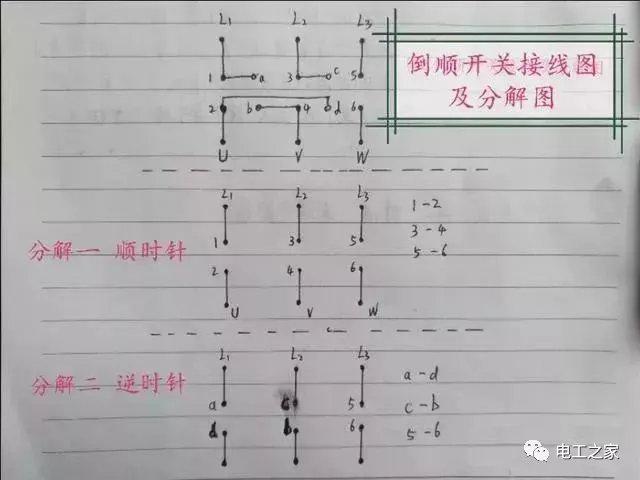 L₁ L₂ L₃
倒顺开关接线图
及分解图
1 a 3 c 5
2 b 4 d 6
U V W
L₁ L₂ L₃
1-2
3-4
分解一 顺时针
1 3 5
5-6
2 4 6
U V W
L₁ L₂ L₃
分解二 逆时针
a-d
a c 5
c-b
d b 6
5-6
电工之家